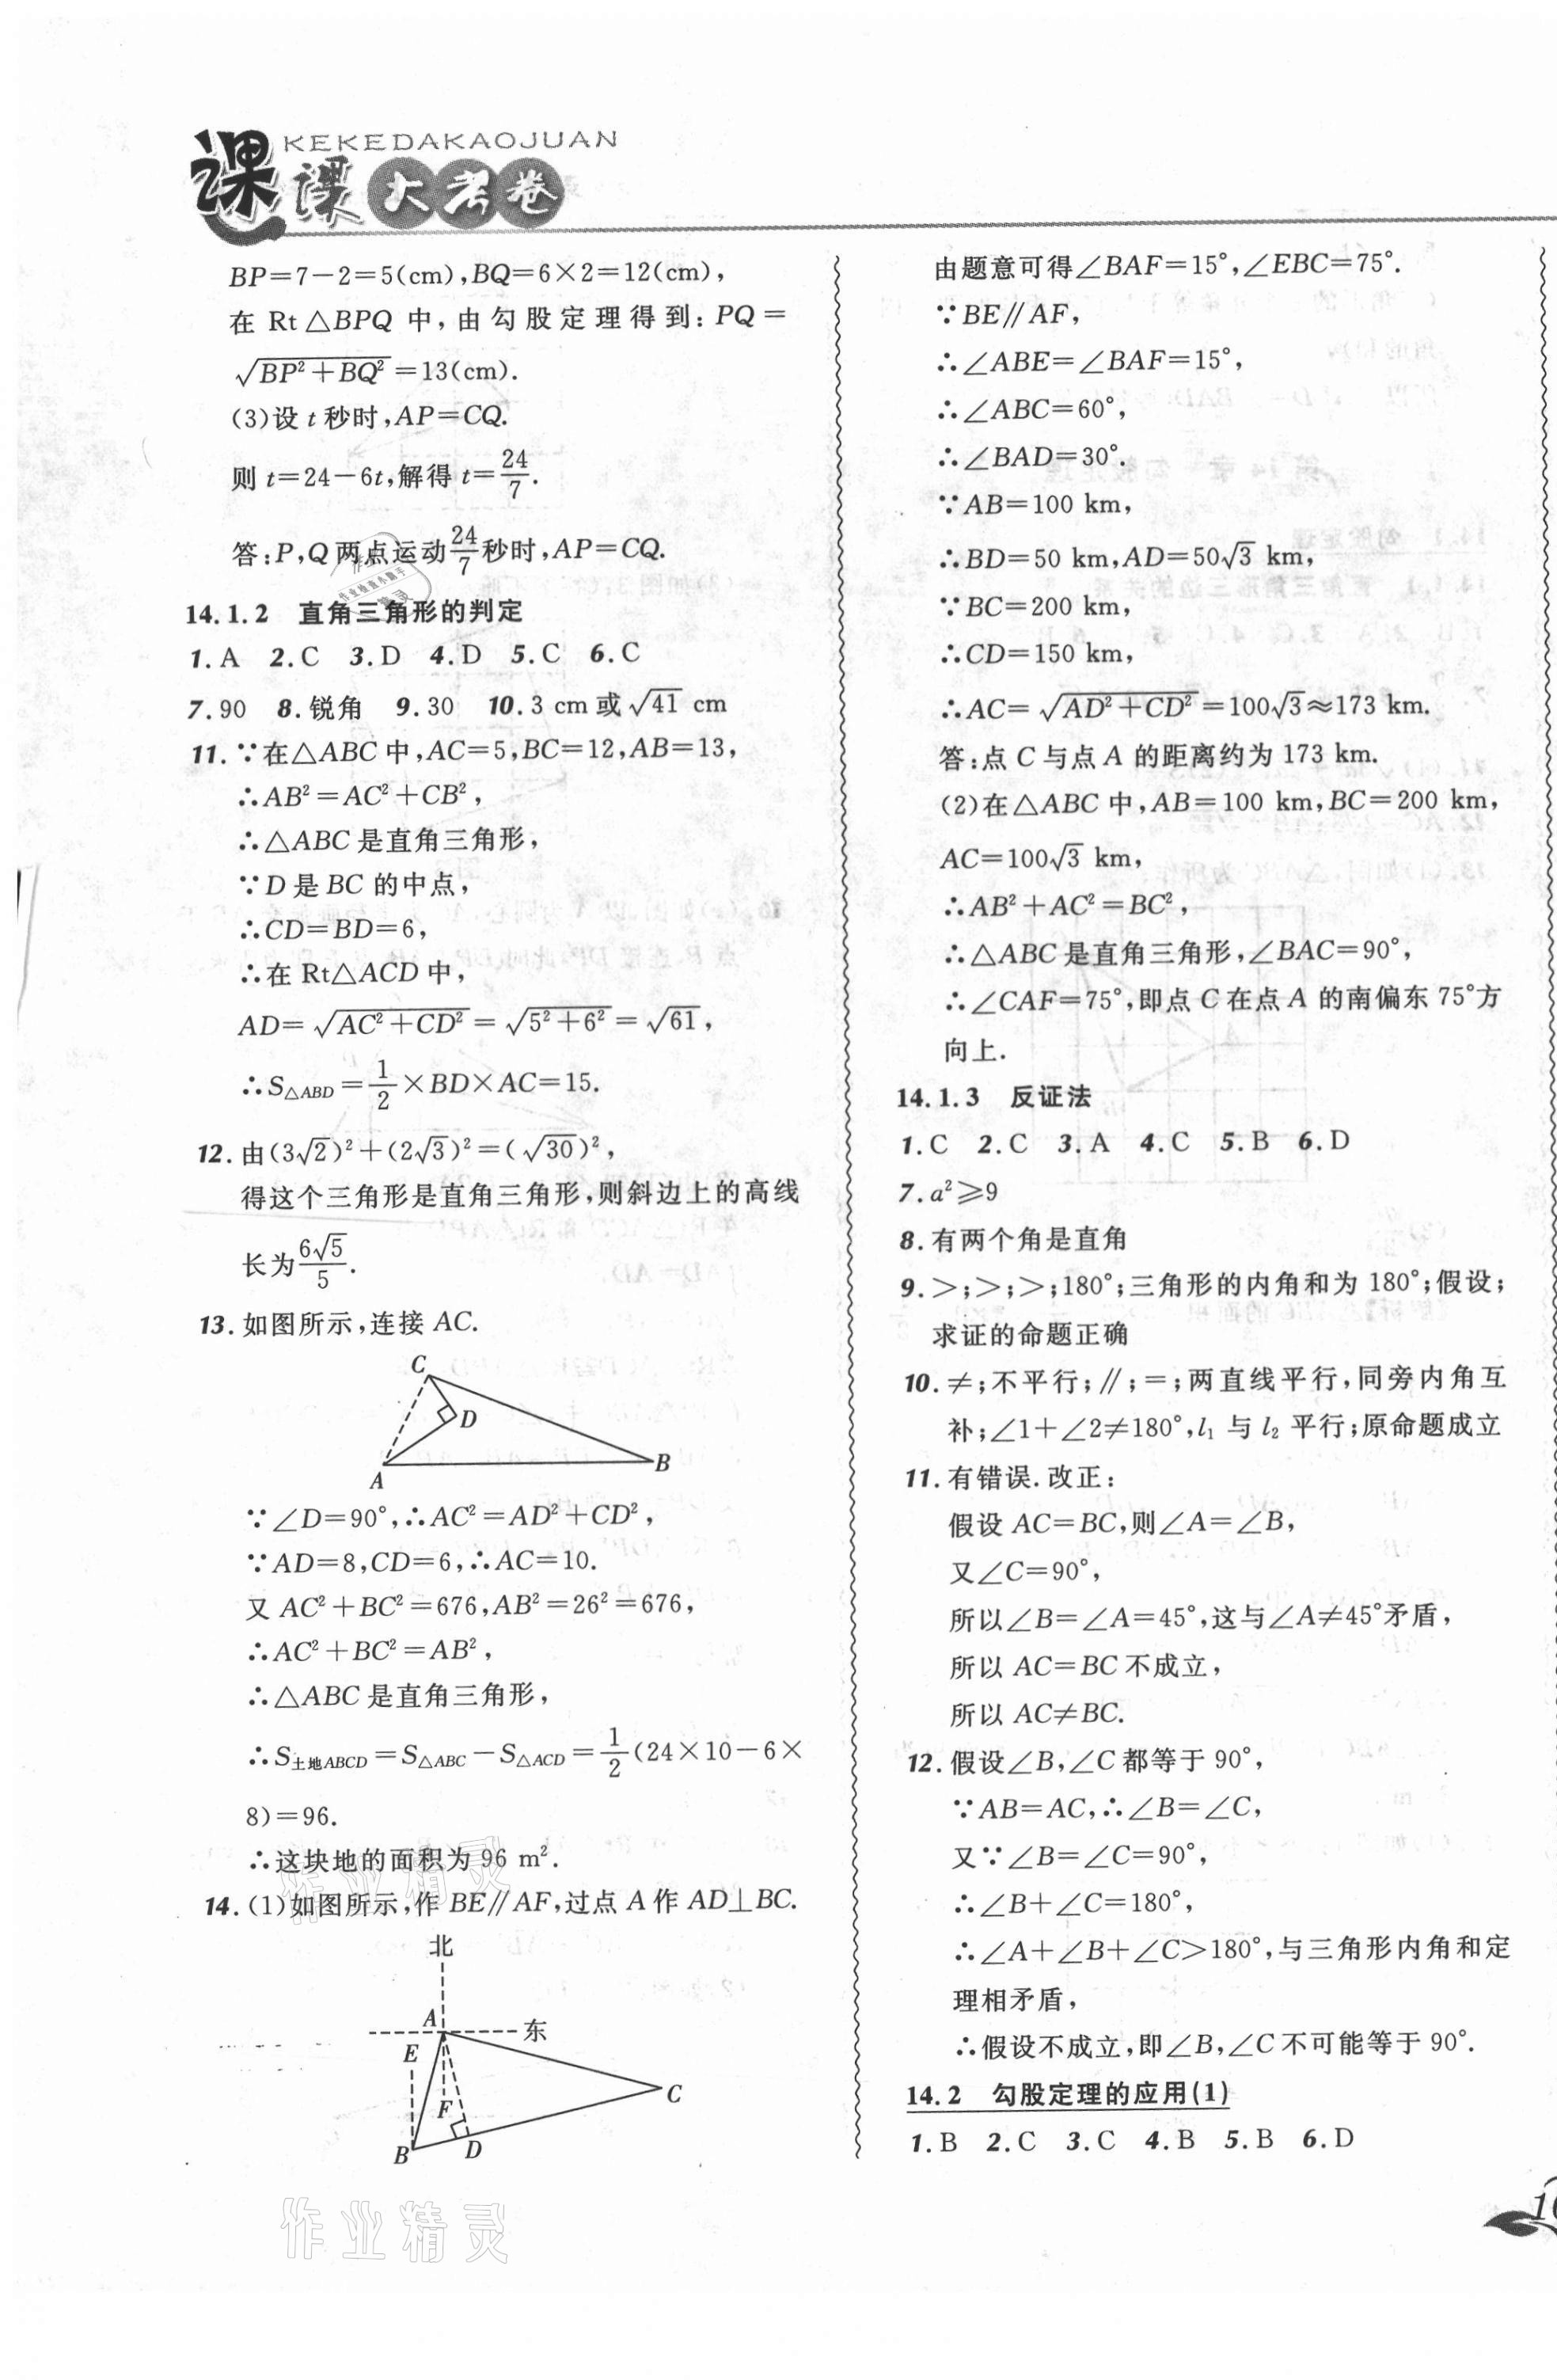 KEKEDAKAOJUAN
课课大考卷
BP=7-2=5(cm),BQ=6×2=12(cm),
在 Rt△BPQ 中,由勾股定理得到:PQ=
√(BP²+BQ²)=13(cm).
(3)设 t 秒时,AP=CQ.
则 t=24-6t,解得 t=24/7.
答:P,Q 两点运动24/7秒时,AP=CQ.
14.1.2 直角三角形的判定
1.A 2.C 3.D 4.D 5.C 6.C
7.90 8.锐角 9.30 10.3 cm或√41 cm
11.∵在△ABC 中,AC=5,BC=12,AB=13,
∴AB²=AC²+CB²,
∴△ABC 是直角三角形,
∵D 是 BC 的中点,
∴CD=BD=6,
∴在 Rt△ACD 中,
AD=√(AC²+CD²)=√(5²+6²)=√61,
∴S△ABD=1/2×BD×AC=15.
12.由(3√2)²+(2√3)²=(√30)²,
得这个三角形是直角三角形,则斜边上的高线
长为6√5/5.
13.如图所示,连接 AC.
C
D
A
B
∵∠D=90°,∴AC²=AD²+CD²,
∵AD=8,CD=6,∴AC=10.
又 AC²+BC²=676,AB²=26²=676,
∴AC²+BC²=AB²,
∴△ABC 是直角三角形,
∴S土地ABCD=S△ABC-S△ACD=1/2(24×10-6×
8)=96.
∴这块地的面积为 96 m².
14.(1)如图所示,作 BE∥AF,过点 A 作 AD⊥BC.
北
A
东
E
F
C
B
D
作业精灵
由题意可得∠BAF=15°,∠EBC=75°.
∵BE∥AF,
∴∠ABE=∠BAF=15°,
∴∠ABC=60°,
∴∠BAD=30°.
∵AB=100 km,
∴BD=50 km,AD=50√3 km,
∵BC=200 km,
∴CD=150 km,
∴AC=√(AD²+CD²)=100√3≈173 km.
答:点 C 与点 A 的距离约为 173 km.
(2)在△ABC 中,AB=100 km,BC=200 km,
AC=100√3 km,
∴AB²+AC²=BC²,
∴△ABC 是直角三角形,∠BAC=90°,
∴∠CAF=75°,即点 C 在点 A 的南偏东 75°方
向上.
14.1.3 反证法
1.C 2.C 3.A 4.C 5.B 6.D
7.a²≥9
8.有两个角是直角
9.>;>;>;180°;三角形的内角和为 180°;假设;
求证的命题正确
10.≠;不平行;∥;=;两直线平行,同旁内角互
补;∠1+∠2≠180°,l₁ 与 l₂ 平行;原命题成立
11.有错误.改正:
假设 AC=BC,则∠A=∠B,
又∠C=90°,
所以∠B=∠A=45°,这与∠A≠45°矛盾,
所以 AC=BC 不成立,
所以 AC≠BC.
12.假设∠B,∠C 都等于 90°,
∵AB=AC,∴∠B=∠C,
又∵∠B=∠C=90°,
∴∠B+∠C=180°,
∴∠A+∠B+∠C>180°,与三角形内角和定
理相矛盾,
∴假设不成立,即∠B,∠C 不可能等于 90°.
14.2 勾股定理的应用(1)
1.B 2.C 3.C 4.B 5.B 6.D